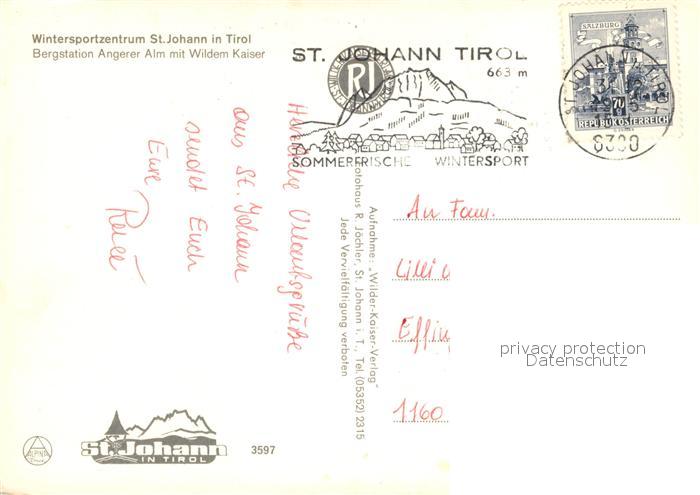 Wintersportzentrum St. Johann in Tirol
Bergstation Angerer Alm mit Wildem Kaiser
ST. JOHANN TIROL
663 m
RJ
SOMMERFRISCHE WINTERSPORT
SALZBURG
REPUBLIK ÖSTERREICH
Herzliche Urlaubsgrüße
aus St. Johann
sendet Euch
Eure
Renée
Aufnahme: „Wilder-Kaiser-Verlag"
Fotohaus R. Jöchler, St. Johann i. T., Tel. (05352) 2315
Jede Vervielfältigung verboten
An Fam.
Lilli
Effin
1160
privacy protection
Datenschutz
ALPINA
St. Johann
IN TIROL
3597